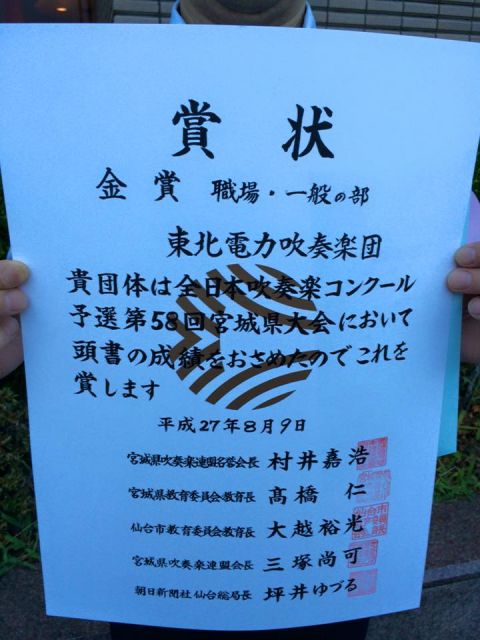 賞状
金賞 職場・一般の部
東北電力吹奏楽団
貴団体は全日本吹奏楽コンクール
予選第58回宮城県大会において
頭書の成績をおさめたのでこれを
賞します
平成27年8月9日
宮城県吹奏楽連盟名誉会長 村井嘉浩
宮城県教育委員会教育長 髙橋仁
仙台市教育委員会教育長 大越裕光
宮城県吹奏楽連盟会長 三塚尚可
朝日新聞社仙台総局長 坪井ゆづる